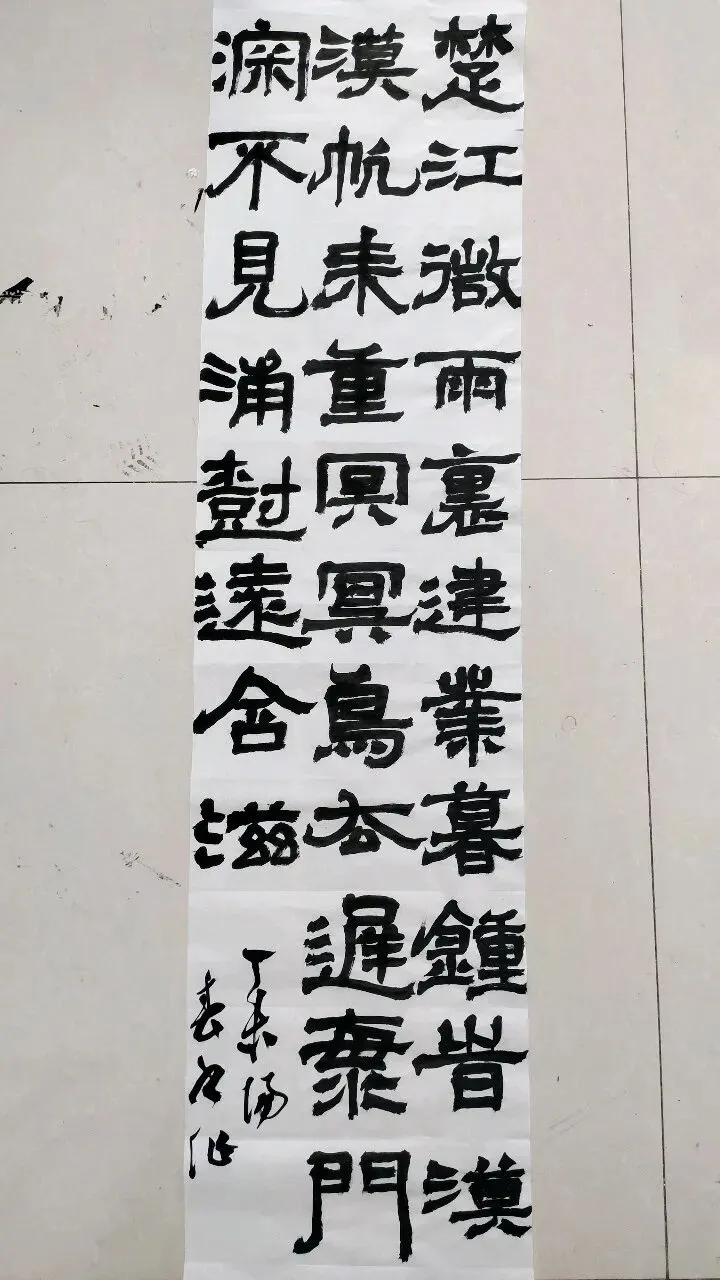 楚江微雨裏建業暮鍾旹漠
漠帆来重冥冥鳥去遲海門
深不見浦尌遠含滋
丁未陽
春作